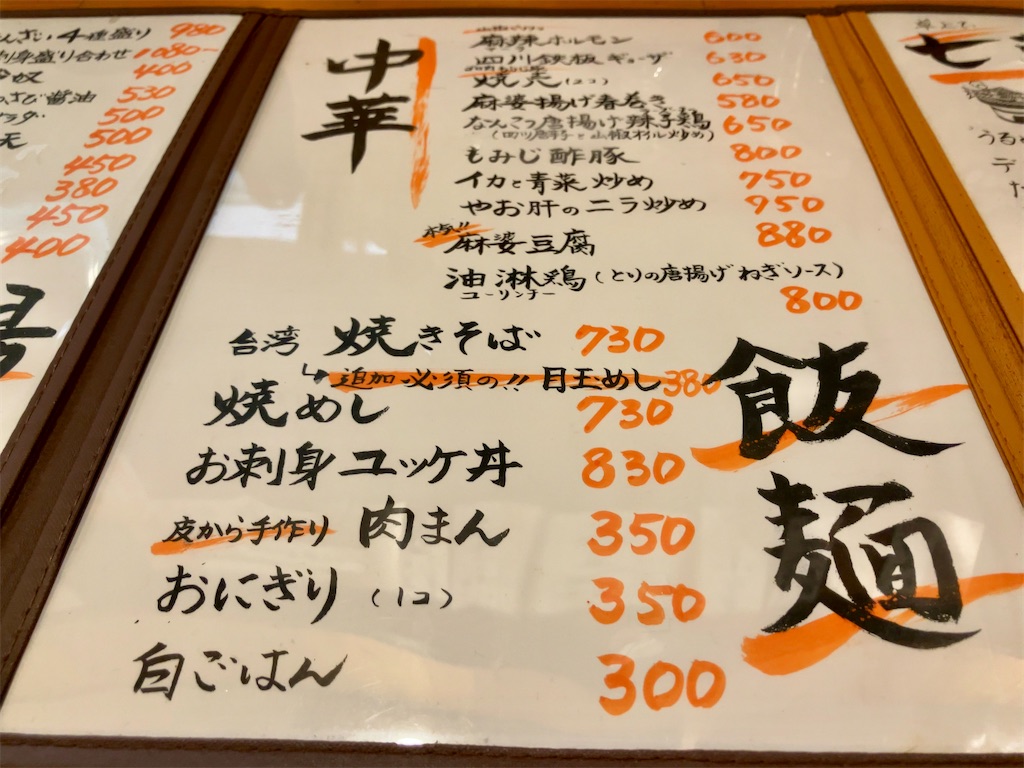 4種盛り 980
盛り合わせ 1080-
奴 400
醤油 530
500
天 500
450
380
450
400
中華
麻辣ホルモン 600
四川鉄板ギョーザ 630
焼売(2コ) 650
麻婆揚げ春巻き 580
なんこつ唐揚げ辣子鶏 650
もみじ酢豚 800
イカと青菜炒め 750
やお肝のニラ炒め 950
麻婆豆腐 880
油淋鶏(とりの唐揚げねぎソース)
ユーリンチー
800
飯麺
台湾 焼きそば 730
追加必須の!!目玉めし 380
焼めし 730
お刺身ユッケ丼 830
皮から手作り 肉まん 350
おにぎり(1コ) 350
白ごはん 300
七